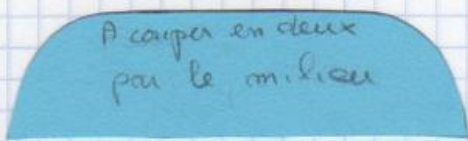 A couper en deux
par le milieu